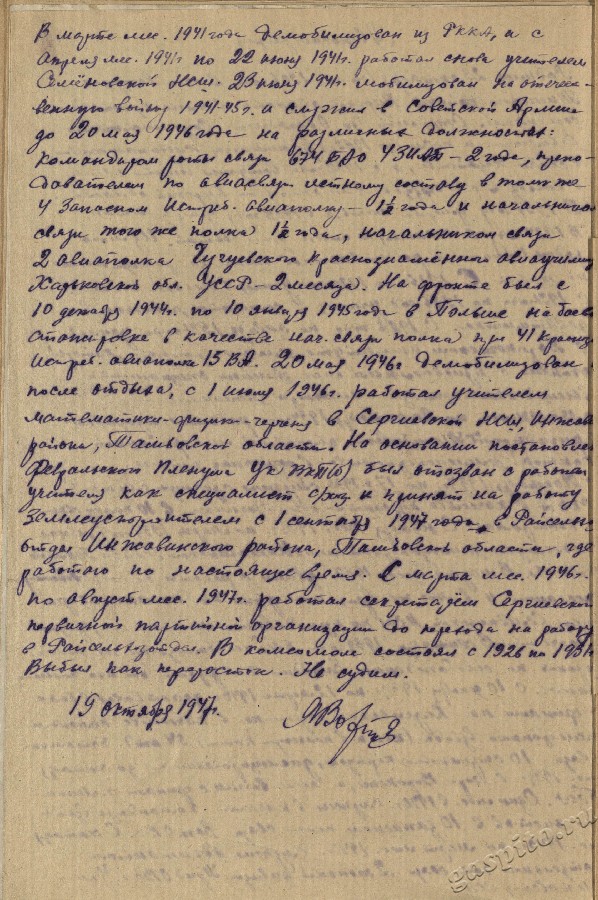 В марте мес. 1941 года демобилизован из РККА, и с
апреля мес. 1941г по 22 июня 1941г. работал снова учителем
Семёновской НСШ. 23 июня 1941г. мобилизован на отечес-
венную войну 1941-45г. и служил в Советской Армии
до 20 мая 1946 года на различных должностях:
командиром роты связи 674 БАО 4 ЗИАП - 2 года, препо-
давателем по авиасвязи летному составу в том же
4 Запасном Истреб. авиаполку - 1½ года и начальником
связи того же полка 1½ года, начальником связи
2 авиаполка Чугуевского Краснознамённого авиаучилищ
Харьковской обл. УССР - 2 месяца. На фронте был с
10 декабря 1944г. по 10 января 1945 года в Польше на боев
стажировке в качестве нач. связи полка при 41 Красноз
Истреб. авиаполка 15 ВА. 20 мая 1946г демобилизован
после отдыха, с 1 июля 1946г. работал учителем
математики-физики-черчения в Сергиевской НСШ, Инжав
района, Тамбовской области. На основании постановлен
Февральского Пленума ЦК ВКП(б) был отозван с работы
учителя как специалист с/хоз и принят на работу
Землеустроителем с 1 сентября 1947 года, в Райсельхоз
отдел Инжавинского района, Тамбовской области, где
работаю по настоящее время. С марта мес. 1946г.
по август мес. 1947г. работал секретарём Сергиевской
первичной партийной организации до перехода на работу
в Райсельхозотдел. В комсомоле состоял с 1926 по 1931г
Выбыл как переросток. Не судим.
19 октября 1947г.
gaspito.ru